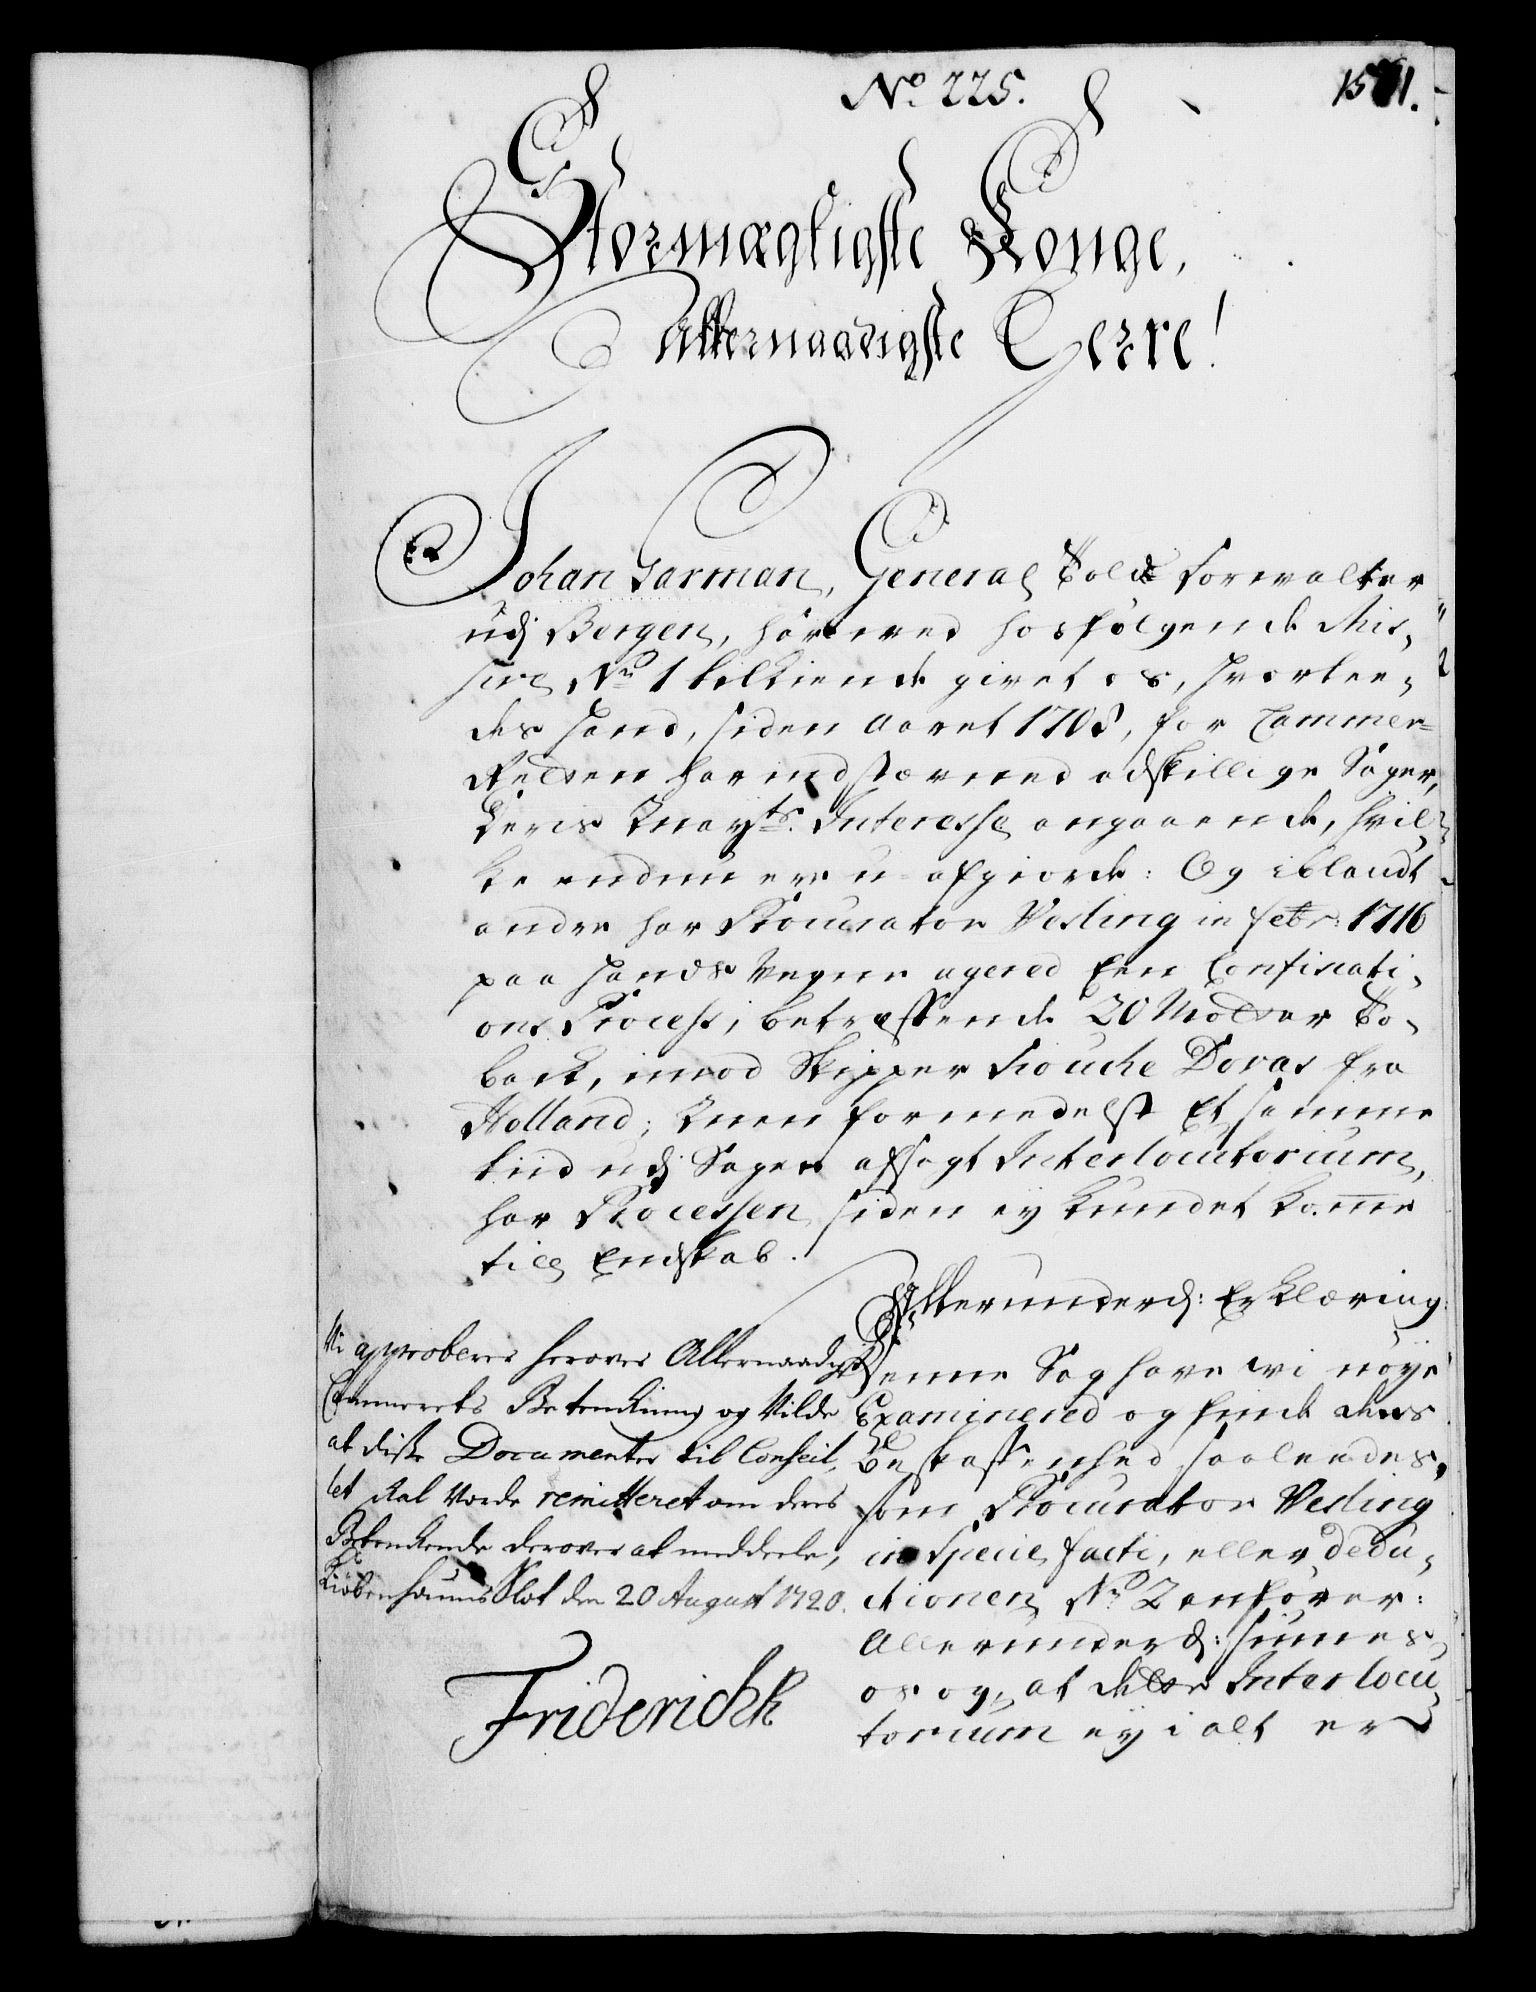 No. 225.
1571.
Stormægtigste Konge,
Allernaadigste Herre!
Johan Garman, General Told Forvalter
udj Bergen, har ved hosfølgende Mis,
sive No 1 tilkiende givet os, hvorlee,
des hand, siden Aaret 1708, for Cammer=
Retten har indstævned adskillige Sager,
Deris Mayts. Interesse angaaende, hvil,
ke endnu ere u-afgiorde: Og iblandt
andre har Procurator Vesling in Febr: 1716
paa hands Vegne agered een Confiscati,
ons Process, betreffende 20 Molder To,
back, imod Skipper Fiouche Dovas fra
Holland; Men formedelst Et samme
tiid udj Sagen afsagt Interlocutorium,
har Processen siden ey kundet komme
till Endskab.
Allerunderd: Erklæring.
Denne Sag have wi nøye
Examinered og finde dens
Beskaffenhed saaledes,
som Procurator Vesling
in Specie facti, eller dedu,
ctionen No 2 anfører:
Allerunderd: siunes
os og, at dette Interlocu,
torium ey i alt er
Vi approberer herover Allernaadigst
Cammerets Betenkning og Vilde
at disse Documenter til Conseil,
let skal Vorde remitteret om deres
Betenkende derover at meddeele,
Kiøbenhavns Slot den 20 August 1720.
Friderich R